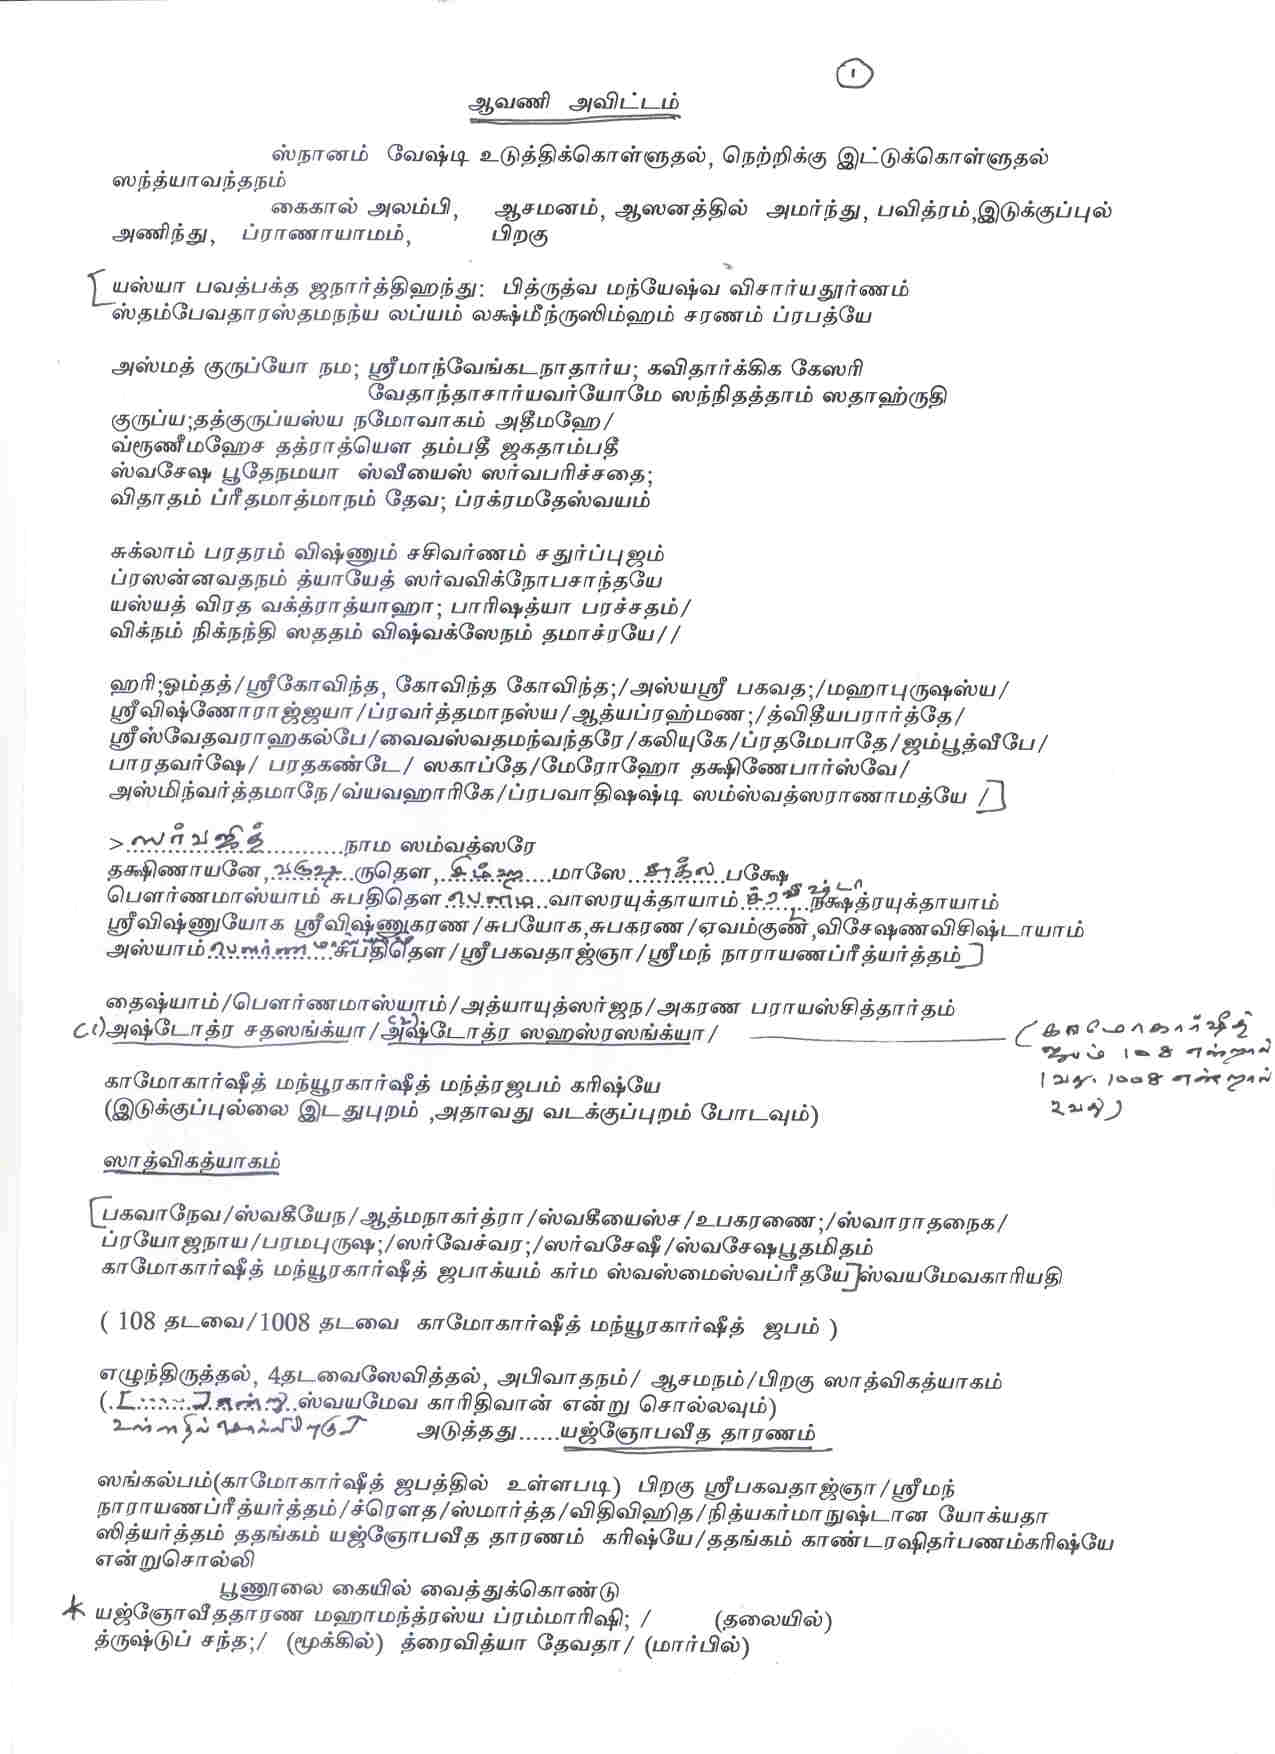 1
ஆவணி அவிட்டம்
ஸ்நானம் வேஷ்டி உடுத்திக்கொள்ளுதல், நெற்றிக்கு இட்டுக்கொள்ளுதல்
ஸந்த்யாவந்தநம்
கைகால் அலம்பி, ஆசமனம், ஆஸனத்தில் அமர்ந்து, பவித்ரம்,இடுக்குப்புல்
அணிந்து, ப்ராணாயாமம், பிறகு
[யஸ்யா பவத்பக்த ஜநார்த்திஹந்து: பித்ருத்வ மந்யேஷ்வ விசார்யதூர்ணம்
ஸ்தம்பேவதாரஸ்தமநந்ய லப்யம் லக்ஷ்மீந்ருஸிம்ஹம் சரணம் ப்ரபத்யே
அஸ்மத் குருப்யோ நம; ஸ்ரீமாந்வேங்கடநாதார்ய; கவிதார்க்கிக கேஸரி
வேதாந்தாசார்யவர்யோமே ஸந்நிதத்தாம் ஸதாஹ்ருதி
குருப்ய;தத்குருப்யஸ்ய நமோவாகம் அதீமஹே/
வ்ருணீமஹேச தத்ராத்யௌ தம்பதீ ஜகதாம்பதீ
ஸ்வசேஷ பூதேநமயா ஸ்வீயைஸ் ஸர்வபரிச்சதை;
விதாதம் ப்ரீதமாத்மாநம் தேவ; ப்ரக்ரமதேஸ்வயம்
சுக்லாம் பரதரம் விஷ்ணும் சசிவர்ணம் சதுர்ப்புஜம்
ப்ரஸன்னவதநம் த்யாயேத் ஸர்வவிக்நோபசாந்தயே
யஸ்யத் விரத வக்த்ராத்யாஹா; பாரிஷத்யா பரச்சதம்/
விக்நம் நிக்நந்தி ஸததம் விஷ்வக்ஸேநம் தமாச்ரயே//
ஹரி;ஓம்தத்/ஸ்ரீகோவிந்த, கோவிந்த கோவிந்த;/அஸ்யஸ்ரீ பகவத;/மஹாபுருஷஸ்ய/
ஸ்ரீவிஷ்ணோராஜ்ஜயா/ப்ரவர்த்தமாநஸ்ய/ஆத்யப்ரஹ்மண;/த்விதீயபரார்த்தே/
ஸ்ரீஸ்வேதவராஹகல்பே/வைவஸ்வதமந்வந்தரே/கலியுகே/ப்ரதமேபாதே/ஜம்பூத்வீபே/
பாரதவர்ஷே/ பரதகண்டே/ ஸகாப்தே/மேரோஹோ தக்ஷிணேபார்ஸ்வே/
அஸ்மிந்வர்த்தமாநே/வ்யவஹாரிகே/ப்ரபவாதிஷஷ்டி ஸம்ஸ்வத்ஸராணாமத்யே /]
> ஸர்வஜித் ..........நாம ஸம்வத்ஸரே
தக்ஷிணாயனே, வருஷ ..ருதௌ, சிம்ஹ ....மாஸே ..சுக்ல ..பக்ஷே
பௌர்ணமாஸ்யாம் சுபதிதௌ ..வாஸரயுக்தாயாம் ஶ்ரவிஷ்டா நக்ஷத்ரயுக்தாயாம்
ஸ்ரீவிஷ்ணுயோக ஸ்ரீவிஷ்ணுகரண/சுபயோக,சுபகரண/ஏவம்குண,விசேஷணவிசிஷ்டாயாம்
அஸ்யாம் பௌர்ணமாஸ்யாம் சுபதிதௌ/ஸ்ரீபகவதாஜ்ஞா/ஸ்ரீமந் நாராயணப்ரீத்யர்த்தம்]
தைஷ்யாம்/பௌர்ணமாஸ்யாம்/அத்யாயுத்ஸர்ஜந/அகரண பராயஸ்சித்தார்தம்
(1)அஷ்டோத்ர சதஸங்க்யா/அஷ்டோத்ர ஸஹஸ்ரஸங்க்யா/
(காமோகார்ஷீத்
ஜபம் 108 என்றால்
1வது. 1008 என்றால்
2வது)
காமோகார்ஷீத் மந்யூரகார்ஷீத் மந்த்ரஜபம் கரிஷ்யே
(இடுக்குப்புல்லை இடதுபுறம் ,அதாவது வடக்குப்புறம் போடவும்)
ஸாத்விகத்யாகம்
[பகவாநேவ/ஸ்வகீயேந/ஆத்மநாகர்த்ரா/ஸ்வகீயைஸ்ச/உபகரணை;/ஸ்வாராதநைக/
ப்ரயோஜநாய/பரமபுருஷ;/ஸர்வேச்வர;/ஸர்வசேஷீ/ஸ்வசேஷபூதமிதம்
காமோகார்ஷீத் மந்யூரகார்ஷீத் ஜபாக்யம் கர்ம ஸ்வஸ்மைஸ்வப்ரீதயே]ஸ்வயமேவகாரியதி
( 108 தடவை/1008 தடவை காமோகார்ஷீத் மந்யூரகார்ஷீத் ஜபம் )
எழுந்திருத்தல், 4தடவைஸேவித்தல், அபிவாதநம்/ ஆசமநம்/பிறகு ஸாத்விகத்யாகம்
(.[......] என்று..ஸ்வயமேவ காரிதிவான் என்று சொல்லவும்)
உள்ளதில் சொல்லிவிட்டு
அடுத்தது......யஜ்ஞோபவீத தாரணம்
ஸங்கல்பம்(காமோகார்ஷீத் ஜபத்தில் உள்ளபடி) பிறகு ஸ்ரீபகவதாஜ்ஞா/ஸ்ரீமந்
நாராயணப்ரீத்யர்த்தம்/ச்ரௌத/ஸ்மார்த்த/விதிவிஹித/நித்யகர்மாநுஷ்டான யோக்யதா
ஸித்யர்த்தம் ததங்கம் யஜ்ஞோபவீத தாரணம் கரிஷ்யே/ததங்கம் காண்டரஷிதர்பணம்கரிஷ்யே
என்றுசொல்லி
பூணூலை கையில் வைத்துக்கொண்டு
* யஜ்ஞோவீததாரண மஹாமந்த்ரஸ்ய ப்ரம்மாரிஷி; / (தலையில்)
த்ருஷ்டுப் சந்த;/ (மூக்கில்) த்ரைவித்யா தேவதா/ (மார்பில்)